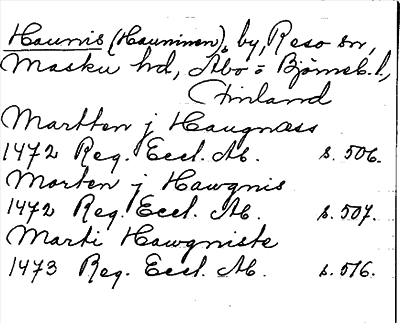 Haunis (Hauninen), by, Reso sn,
Masku hd, Åbo = Björneb. l.,
Finland
Martten j Haugnæss
1472 Reg. Eccl. Ab. s. 506.
Morten j Hawgnis
1472 Reg. Eccl. Ab. s. 507.
Marti Hawgniste
1473 Reg. Eccl. Ab. s. 516.